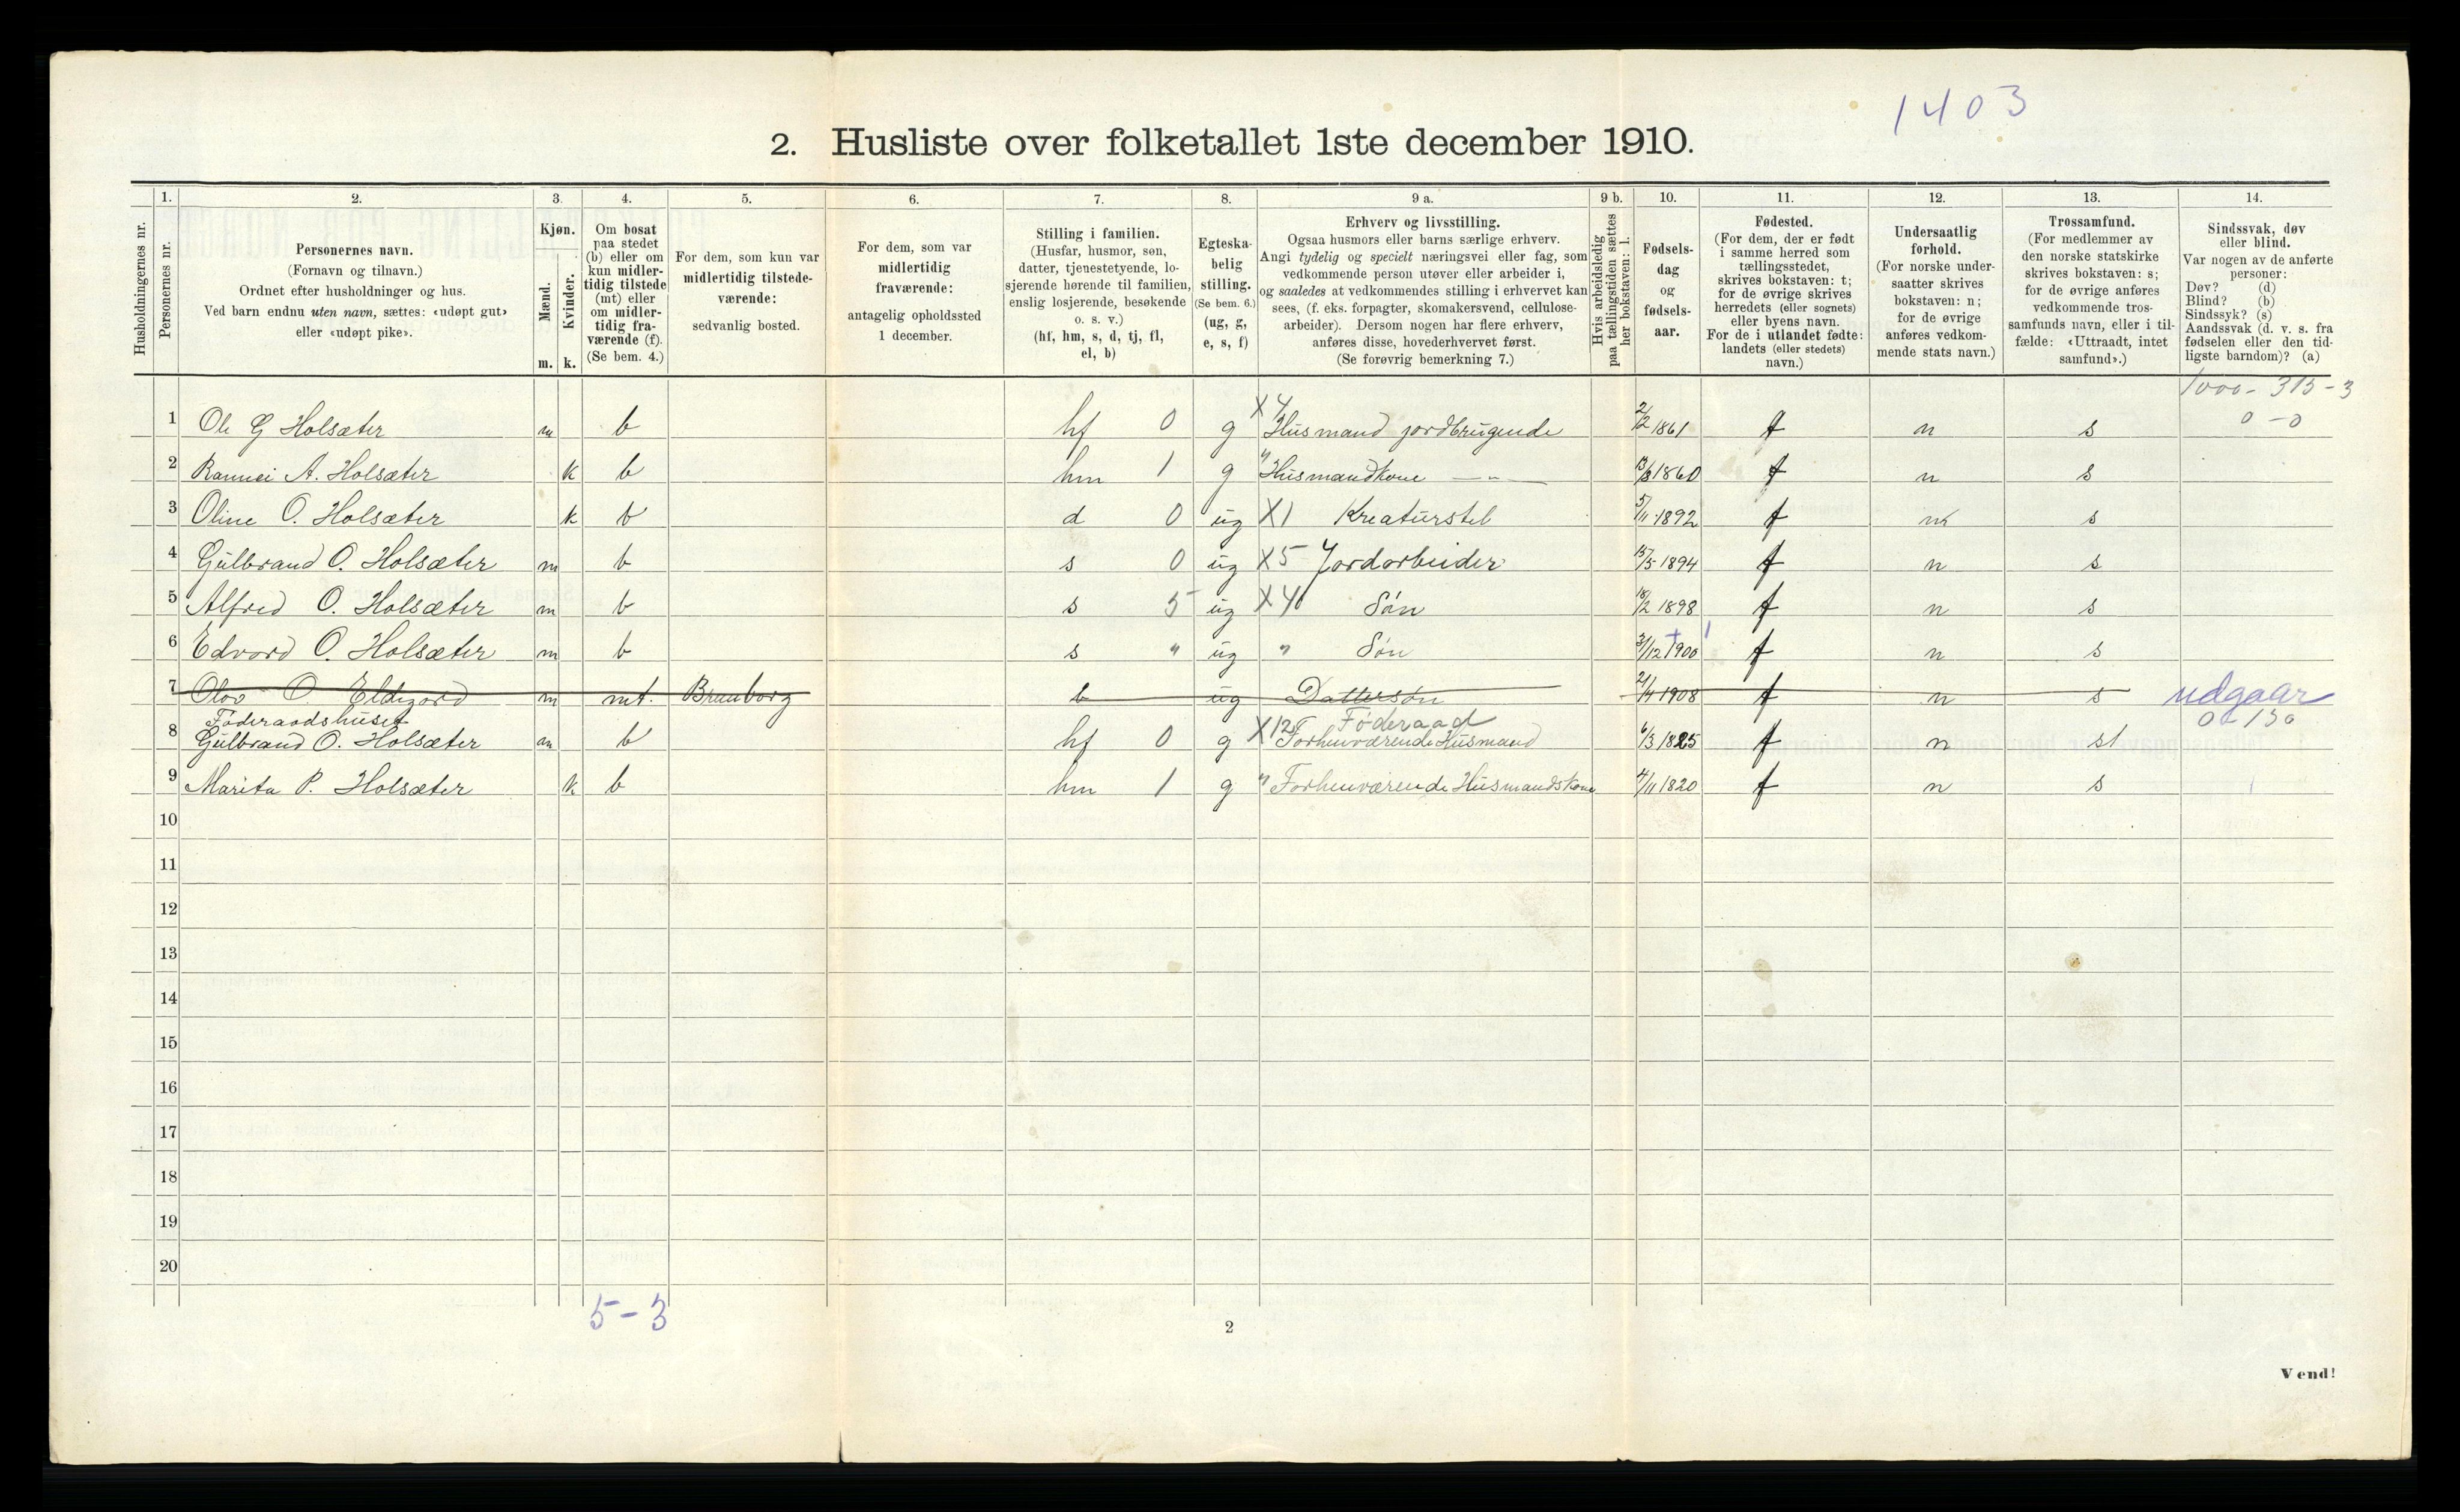 1403
2. Husliste over folketallet 1ste december 1910.
Husholdningernes nr.
1.
Personernes nr.
2.
Personernes navn.
(Fornavn og tilnavn.)
Ordnet efter husholdninger og hus.
Ved barn endnu uten navn, sættes: «udøpt gut»
eller «udøpt pike».
3.
Kjøn.
Mænd.
Kvinder.
m. k.
4.
Om bosat
paa stedet
(b) eller om
kun midler-
tidig tilstede
(mt) eller
om midler-
tidig fra-
værende (f).
(Se bem. 4.)
5.
For dem, som kun var
midlertidig tilstede-
værende:
sedvanlig bosted.
6.
For dem, som var
midlertidig
fraværende:
antagelig opholdssted
1 december.
7.
Stilling i familien.
(Husfar, husmor, søn,
datter, tjenestetyende, lo-
sjerende hørende til familien,
enslig losjerende, besøkende
o. s. v.)
(hf, hm, s, d, tj, fl,
el, b)
8.
Egteska-
belig
stilling.
(Se bem. 6.)
(ug, g,
e, s, f)
9 a.
Erhverv og livsstilling.
Ogsaa husmors eller barns særlige erhverv.
Angi tydelig og specielt næringsvei eller fag, som
vedkommende person utøver eller arbeider i,
og saaledes at vedkommendes stilling i erhvervet kan
sees, (f. eks. forpagter, skomakersvend, cellulose-
arbeider). Dersom nogen har flere erhverv,
anføres disse, hovederhvervet først.
(Se forøvrig bemerkning 7.)
9 b.
Hvis arbeidsledig
paa tællingstiden sættes
her bokstaven: l.
10.
Fødsels-
dag
og
fødsels-
aar.
11.
Fødested.
(For dem, der er født
i samme herred som
tællingsstedet,
skrives bokstaven: t;
for de øvrige skrives
herredets (eller sognets)
eller byens navn.
For de i utlandet fødte:
landets (eller stedets)
navn.)
12.
Undersaatlig
forhold.
(For norske under-
saatter skrives
bokstaven: n;
for de øvrige
anføres vedkom-
mende stats navn.)
13.
Trossamfund.
(For medlemmer av
den norske statskirke
skrives bokstaven: s;
for de øvrige anføres
vedkommende tros-
samfunds navn, eller i til-
fælde: «Uttraadt, intet
samfund».)
14.
Sindssvak, døv
eller blind.
Var nogen av de anførte
personer:
Døv? (d)
Blind? (b)
Sindssyk? (s)
Aandssvak (d. v. s. fra
fødselen eller den tid-
ligste barndom)? (a)
1000 - 315 - 3
0 - 0
1 Ole G Holsæter m b hf 0 g X4 Husmand jordbrugende 2/2 1861 t n s
2 Rannei A. Holsæter k b hm 1 g " Husmandkone — " — 1860 t n s
3 Oline O. Holsæter k b d 0 ug X1 Kreaturstel 5/11 1892 t n s
4 Gulbrand O. Holsæter m b s 0 ug X5 Jordarbeider 15/5 1894 t n s
5 Alfred O. Holsæter m b s 5 ug X4 Søn 18/2 1898 t n s
6 Edvard O. Holsæter m b s " ug " Søn 3/12 1900 t n s
7 Olov O. Eldegard m mt. Brenborg b ug Dattersøn 21/4 1908 t n s udgaar
Føderaadshuset Føderaad 0 - 150
8 Gulbrand O. Holsæter m b hf 0 g X12 Forhenværende Husmand 6/3 1825 t n s
9 Marita P. Holsæter k b hm 1 g " Forhenværende Husmandskone 4/11 1820 t n s
10
11
12
13
14
15
16
17
18
19
20
5 - 3
2
Vend!